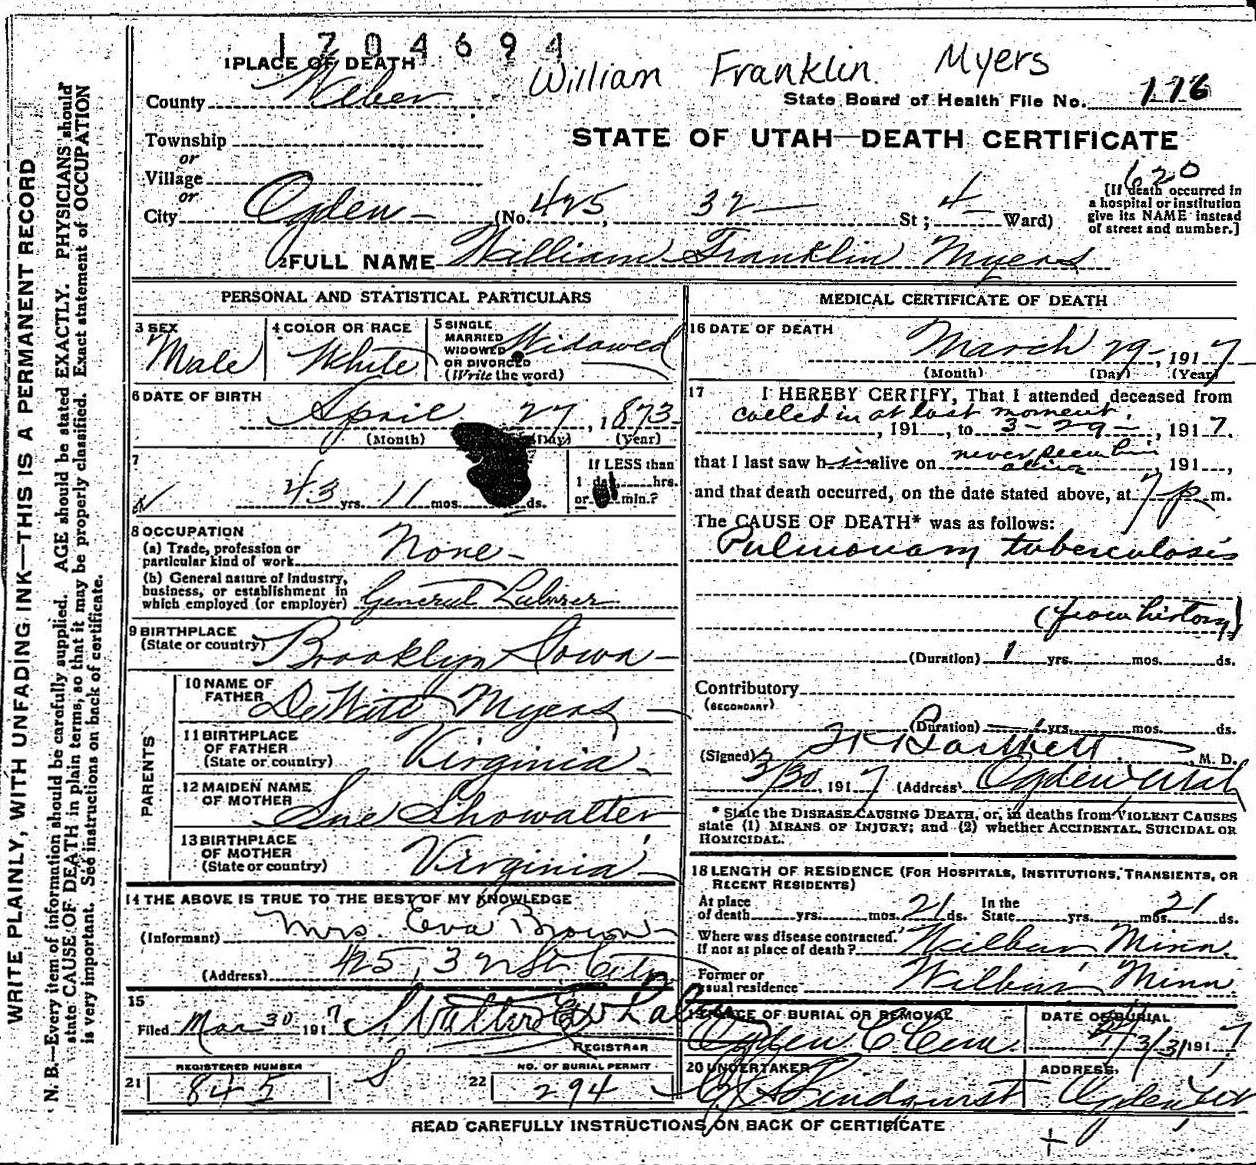 1704694
William Franklin Myers
1 PLACE OF DEATH
County Weber
State Board of Health File No. 176
Township
or
Village
or
STATE OF UTAH—DEATH CERTIFICATE
620
City Ogden (No. 425, 32 St; 4 Ward)
[If death occurred in
a hospital or institution
give its NAME instead
of street and number.]
2 FULL NAME William Franklin Myers
PERSONAL AND STATISTICAL PARTICULARS
3 SEX
Male
4 COLOR OR RACE
White
5 SINGLE
MARRIED
WIDOWED
OR DIVORCED
(Write the word)
Widowed
6 DATE OF BIRTH
April 27, 1873
(Month) (Day) (Year)
7
43 yrs. 11 mos. ds.
If LESS than
1 day hrs.
or min.?
8 OCCUPATION
(a) Trade, profession or
particular kind of work None
(b) General nature of industry,
business, or establishment in
which employed (or employer) General Laborer
9 BIRTHPLACE
(State or country) Brooklyn Iowa
PARENTS
10 NAME OF
FATHER DeWitt Myers
11 BIRTHPLACE
OF FATHER
(State or country) Virginia
12 MAIDEN NAME
OF MOTHER Sue Showalter
13 BIRTHPLACE
OF MOTHER
(State or country) Virginia
14 THE ABOVE IS TRUE TO THE BEST OF MY KNOWLEDGE
(Informant) Mrs. Eva Brown
(Address) 425, 32 St City
15
Filed Mar 30 1917
REGISTRAR
REGISTERED NUMBER
21 845
NO. OF BURIAL PERMIT
22 294
MEDICAL CERTIFICATE OF DEATH
16 DATE OF DEATH
March 29, 1917
(Month) (Day) (Year)
17 I HEREBY CERTIFY, That I attended deceased from
called in at last moment.
, 191, to 3-29-, 1917.
that I last saw him alive on never saw him alive, 191,
and that death occurred, on the date stated above, at 7 p m.
The CAUSE OF DEATH* was as follows:
Pulmonary tuberculosis
(from history)
(Duration) 1 yrs. mos. ds.
Contributory
(SECONDARY)
(Duration) yrs. mos. ds.
(Signed) Bartlett, M. D.
3/30, 1917 (Address) Ogden Utah
* State the DISEASE CAUSING DEATH, or, in deaths from VIOLENT CAUSES
state (1) MEANS OF INJURY; and (2) whether ACCIDENTAL SUICIDAL OR
HOMICIDAL.
18 LENGTH OF RESIDENCE (FOR HOSPITALS, INSTITUTIONS, TRANSIENTS, OR
RECENT RESIDENTS)
At place
of death yrs. mos. 21 ds. In the
State yrs. mos. 21 ds.
Where was disease contracted.
If not at place of death? Wilbur Minn.
Former or
usual residence Wilbur Minn.
19 PLACE OF BURIAL OR REMOVAL
Ogden C Cem.
DATE OF BURIAL
3/31 1917
20 UNDERTAKER
Lindquist
ADDRESS,
Ogden Ut
READ CAREFULLY INSTRUCTIONS ON BACK OF CERTIFICATE
WRITE PLAINLY, WITH UNFADING INK—THIS IS A PERMANENT RECORD
N. B.—Every item of information should be carefully supplied. AGE should be stated EXACTLY. PHYSICIANS should
state CAUSE OF DEATH in plain terms, so that it may be properly classified. Exact statement of OCCUPATION
is very important. See instructions on back of certificate.